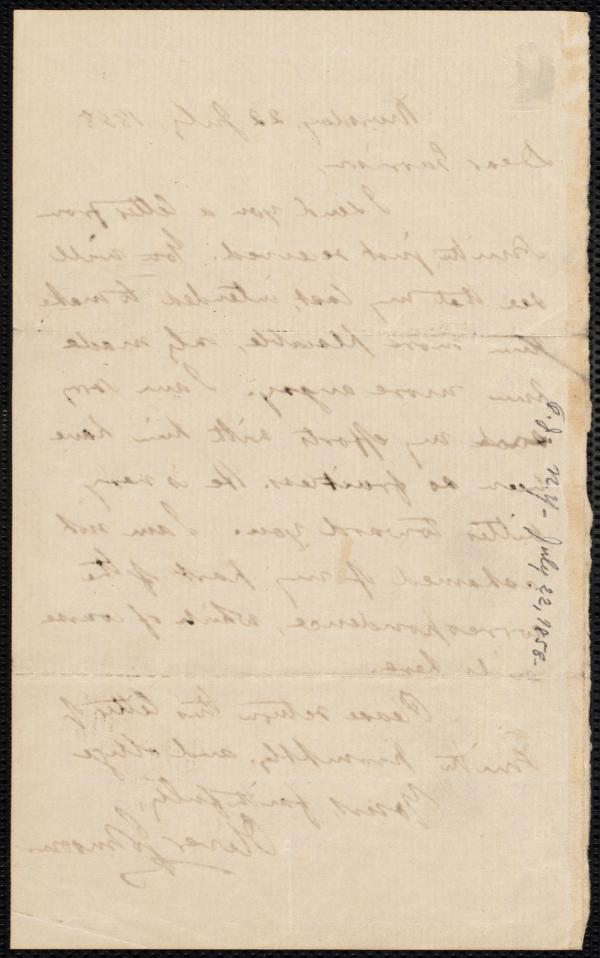 Thursday, 22 July, 1858.
Dear Garrison,
I send you a letter from
Smith, just received. You will
see that my last, intended to make
him more placable, only made
him more angry. I am sorry
my efforts with him have
been so fruitless. He is very
bitter toward you. I am not
ashamed of my part of the
correspondence, which of course
is here.
Please return this letter of
Smith promptly, and oblige
Yours faithfully,
Oliver Johnson.
O. J. N.Y- July 22, 1858.